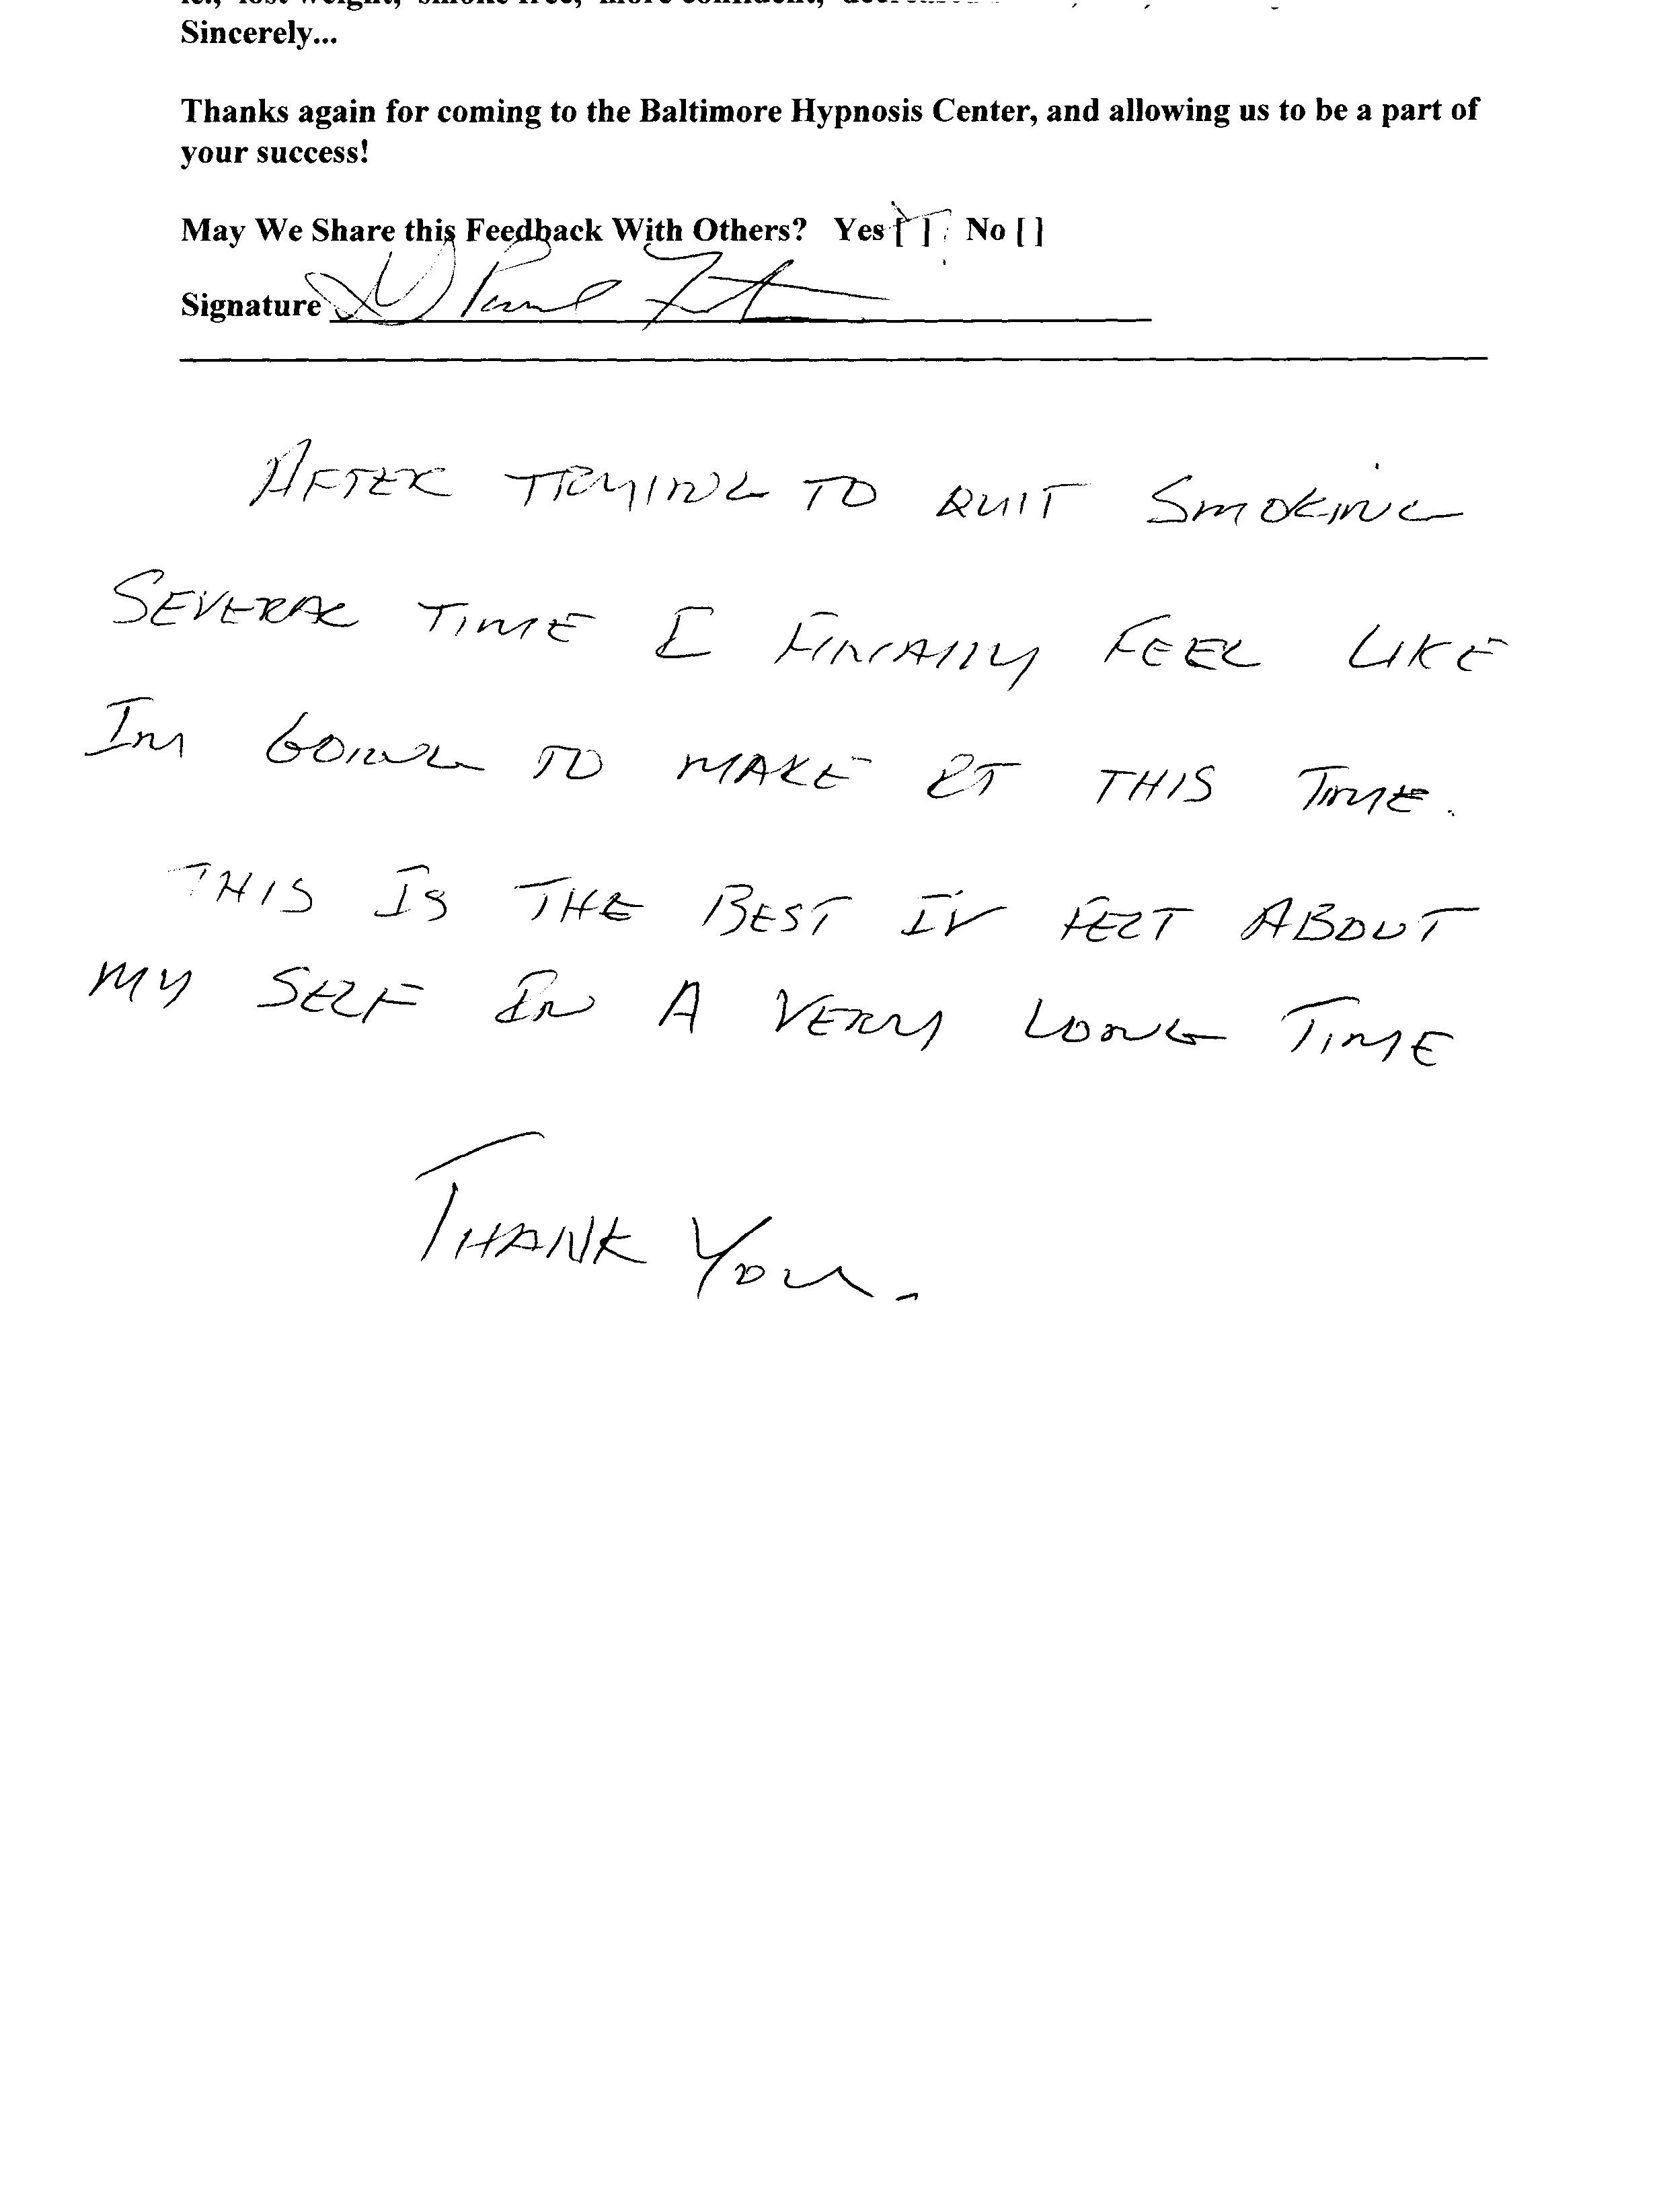 Sincerely...
Thanks again for coming to the Baltimore Hypnosis Center, and allowing us to be a part of
your success!
May We Share this Feedback With Others? Yes [ ] No [ ]
Signature
AFTER TRYING TO QUIT SMOKING
SEVERAL TIME I FINIALLY FEEL LIKE
IM GOING TO MAKE IT THIS TIME.
THIS IS THE BEST IV FELT ABOUT
MY SELF IN A VERY LONG TIME
THANK YOU.